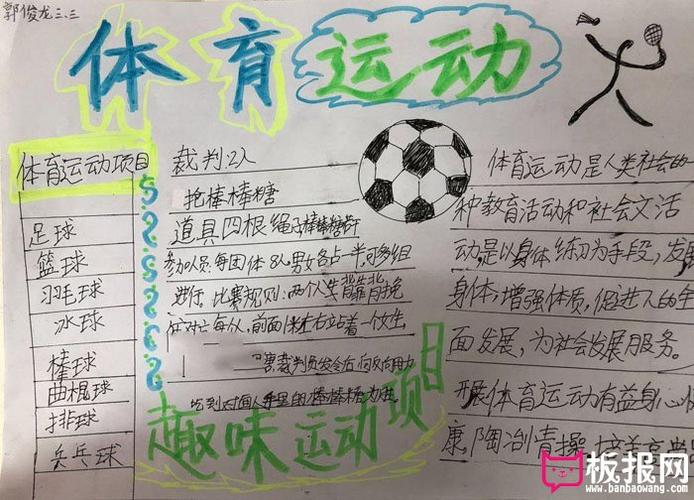 郭俊龙三.三
体育运动
体育运动项目
足球
篮球
羽毛球
冰球
棒球
曲棍球
排球
乒乓球
裁判:2人
抢棒棒糖
道具四根绳子棒棒糖
参加人员:每团体8人男女各占一半可多组
进行 比赛规则:两个人背靠背挽
前面1米左右站着一个女生
裁判员发令后同时向
吃到对面人手里的棒棒糖为胜
趣味运动项目
体育运动是人类社会的
种教育活动和社会文活
动是以身体练习为手段,发展
身体,增强体质,促进人的全
面发展,为社会发展服务。
开展体育运动有益身心
康,陶冶情操,培养
板报网
www.banbaowang.com